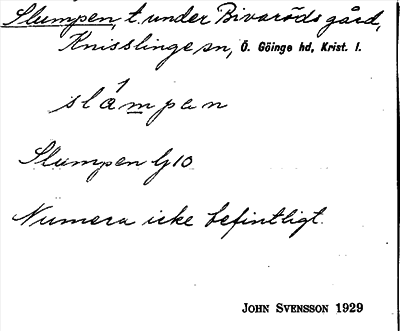 Slumpen, t. under Bivaröds gård,
Knisslinge sn, Ö. Göinge hd, Krist. l.
slámpen
Slumpen Gj 10
Numera icke befintligt.
JOHN SVENSSON 1929